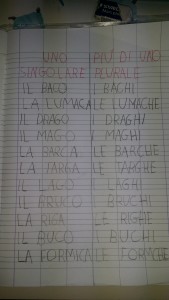 UNO PIÚ DI UNO
SINGOLARE PLURALE
IL BACO I BACHI
LA LUMACA LE LUMACHE
IL DRAGO I DRAGHI
IL MAGO I MAGHI
LA BARCA LE BARCHE
LA TARGA LE TARGHE
IL LAGO I LAGHI
IL BRUCO I BRUCHI
LA RIGA LE RIGHE
IL BUCO I BUCHI
LA FORMICA LE FORMICHE